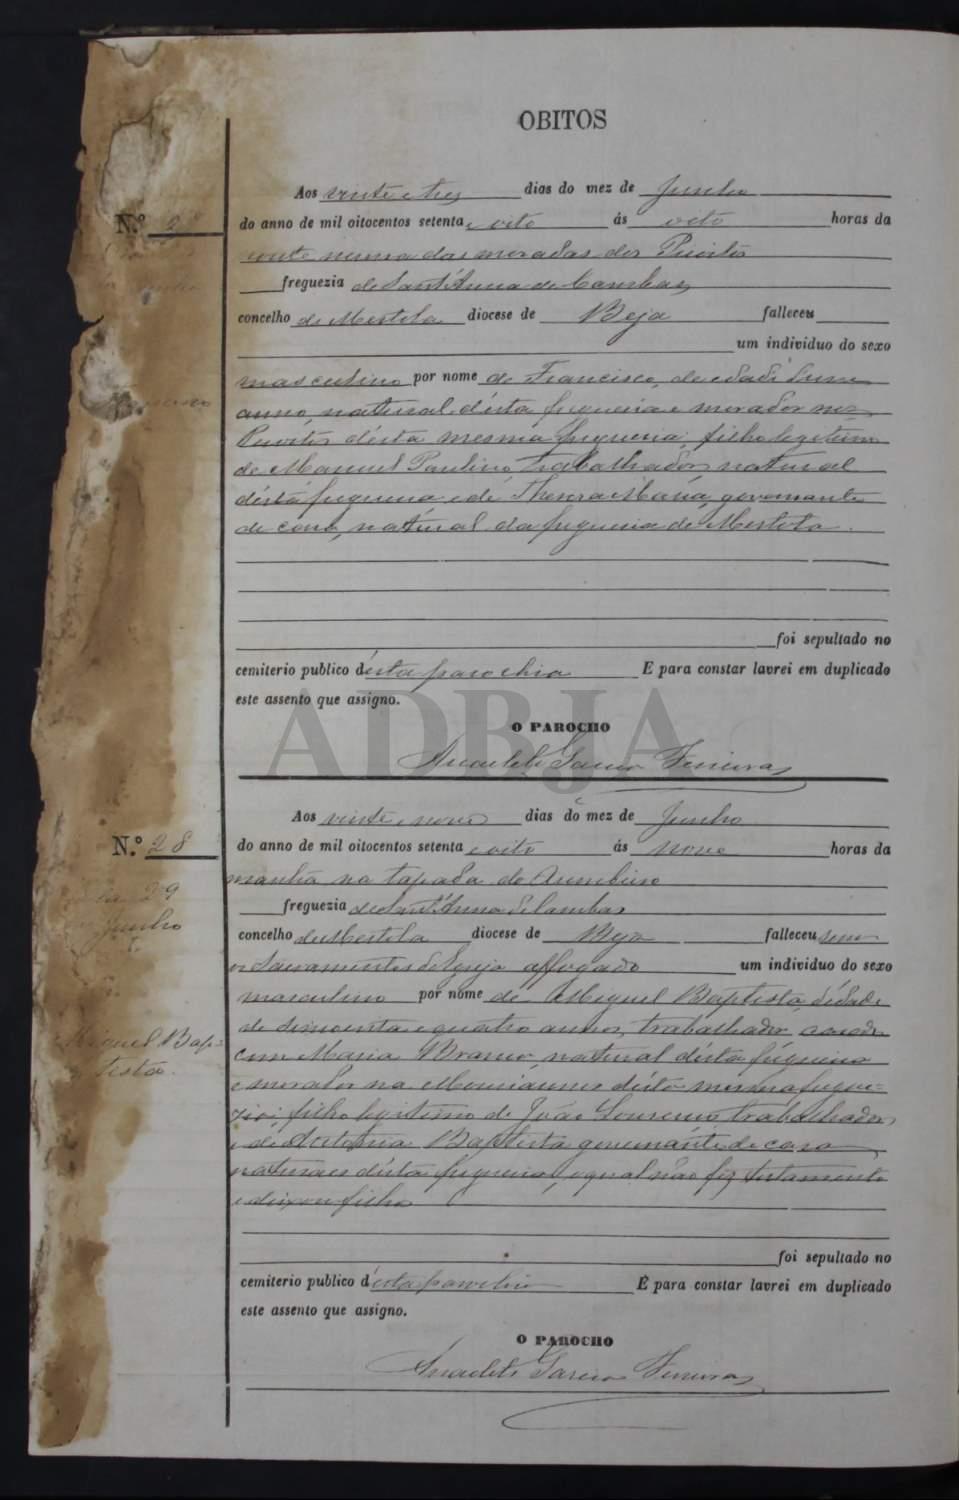 OBITOS
Aos vinte e tres dias do mez de Junho
N.º 2
do anno de mil oitocentos setenta e oito ás oito horas da
noute numa das moradas dos
freguezia de Sant'Anna de Cambas
concelho de Mertola diocese de Beja falleceu
um individuo do sexo
masculino por nome de Francisco, de edade d'um
anno, natural d'ésta freguezia e morador nos
d'ésta mesma freguezia; filho legitimo
de Manuel Paulino, trabalhador, natural
d'ésta freguezia, e de Thereza Maria, governante
de casa, natural da freguezia de Mertola.
foi sepultado no
cemiterio publico d'ésta parochia E para constar lavrei em duplicado
este assento que assigno.
O PAROCHO
Anacleto Garcia Ferreira
ADBJA
Aos vinte e nove dias do mez de Junho
N.º 28
do anno de mil oitocentos setenta e oito ás nove horas da
manhã na tapada do
29
Junho
freguezia de Sant'Anna de Cambas
concelho de Mertola diocese de Beja falleceu sem
os Sacramentos da Egreja affogado um individuo do sexo
masculino por nome de Miguel Baptista, d'édade
Miguel Bap-
tista.
de cincoenta e quatro annos, trabalhador, casado
com Maria natural d'ésta freguezia
e morador na d'ésta mesma fregue-
zia; filho legitimo de João Lourenço, trabalhador,
e de Baptista governante de casa,
naturaes d'ésta freguezia, o qual não fez testamento
e deixou filhos
foi sepultado no
cemiterio publico d'ésta parochia E para constar lavrei em duplicado
este assento que assigno.
O PAROCHO
Anacleto Garcia Ferreira